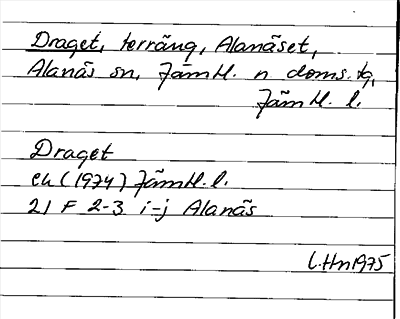 Draget, terräng, Alanäset,
Alanäs sn, Jämtl. n doms. tg,
Jämtl. l.
Draget
ek (1974) Jämtl. l.
21 F 2-3 i-j Alanäs
L.Hn 1975